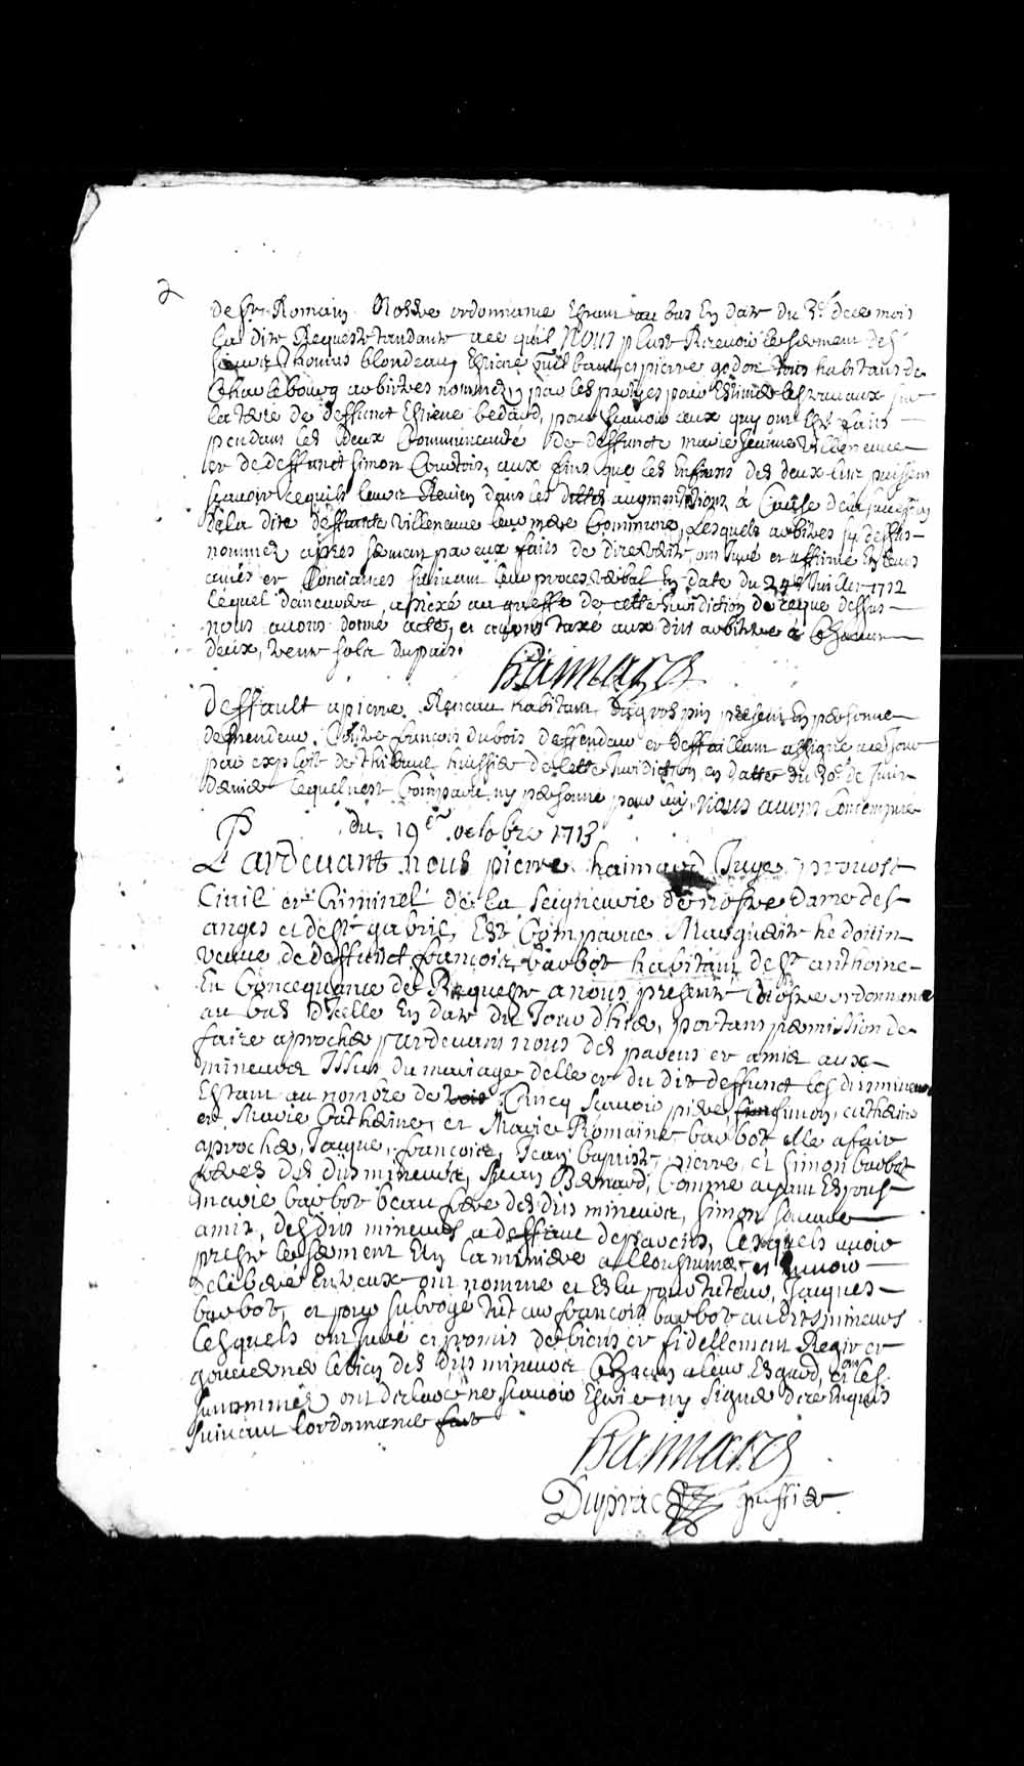 2
de St Romain Nostre ordonnance Estant au bas En date du 3e de ce mois
La dite Requeste tandante a ce quil nous plust Recevoir le serment des
sieurs thomas blondeau, Estiene et pierre godon tous habitans de
Charlebourg arbitres nommez par les parties pour Estimer les travaux sur
la terre de deffunct Estiene bedard, pour scavoir ceux quy ont Esté faits
pendant les deux Communauté de deffuncte marie jeanne villeneuve
et de deffunct simon Courtois, aux fins que les Enffans des deux lits puissent
scavoir ce quils leur Revien dans les dittes augmentations a Cause de la succession
de la dite deffuncte villeneuve leur mere Commune, Lesquels arbitres sy dessus
nommez apres serment par eux faits de dire verité, ont juré et affirmé En leurs
ames et Conciances suivant leur proces verbal En date du 24e Juillet 1712
Lequel demeurera annexé au greffe de cette Juridiction de ceque dessus
nous avons donné acte, et avons taxé aux dits arbitre a Chacun
deux, vent sols du pais.
haimard
deffault a pierre Reneau habitant present En personne
demendeur. Contre francois dubois deffendeur et deffaillant assigné a ce jour
par exploit de thibault huissier de cette Juridiction en datte du 30e de Juin
dernier Lequel nest Comparu ny personne pour luy, nous avons
du 19e octobre 1713
Pardevant nous pierre haimard Juge provost
Civil et Criminel de la seigneurie de nostre dame des
anges et de St gabriel, Est Comparue Marguerite hedouin
veuve de deffunct francois barbot habitant de St anthoine
En Concequance de Requeste a nous presenté nostre ordonnance
au bas dicelle En date du Jour dhier, portant permission de
faire aprocher pardevant nous des parens et amis aux
mineurs Issus du mariage delle et du dit deffunct les dits mineurs
Estant au nombre de Cincq scavoir piere, simon, catherine
et Marie Catherine, et Marie Romaine barbot elle a fait
aprocher Jacque, francois, Jean baptiste, pierre et simon barbot
freres des dits mineurs, Jean Bernard, Comme ayant Espousé
marie barbot beau frere des dits mineurs, simon
amis, des dits mineurs a deffaut de parens, Lesquels avoir
presté le serment En la maniere accoustumée et avoir
deliberé Entreux ont nommé et Eslu pour tuteur, Jacques
barbot, et pour subrogé tuteur francois barbot audits mineurs
Lesquels ont juré et promis de bien et fidellement Regir et
gouverner le bien des dits mineurs Chacun a leur Esgard, et les
surnommez ont declaré ne scavoir Escrire ny signer de ce Enquis
suivant lordonnance
haimard
Duprac greffier